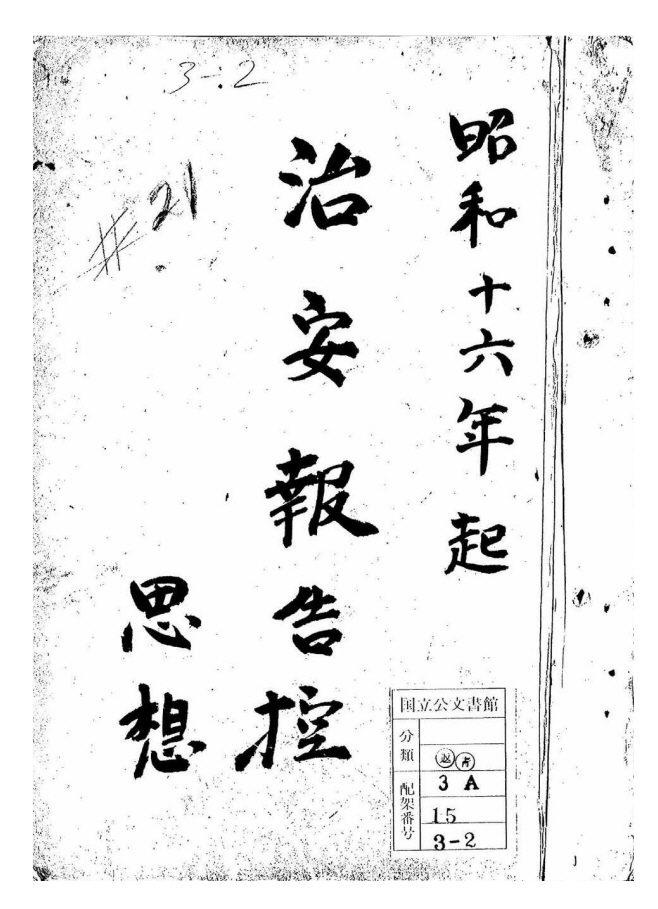 3-2
#21
昭和十六年起
治安報告控
思想
国立公文書館
分類
返青
配架番号
3 A
15
3-2